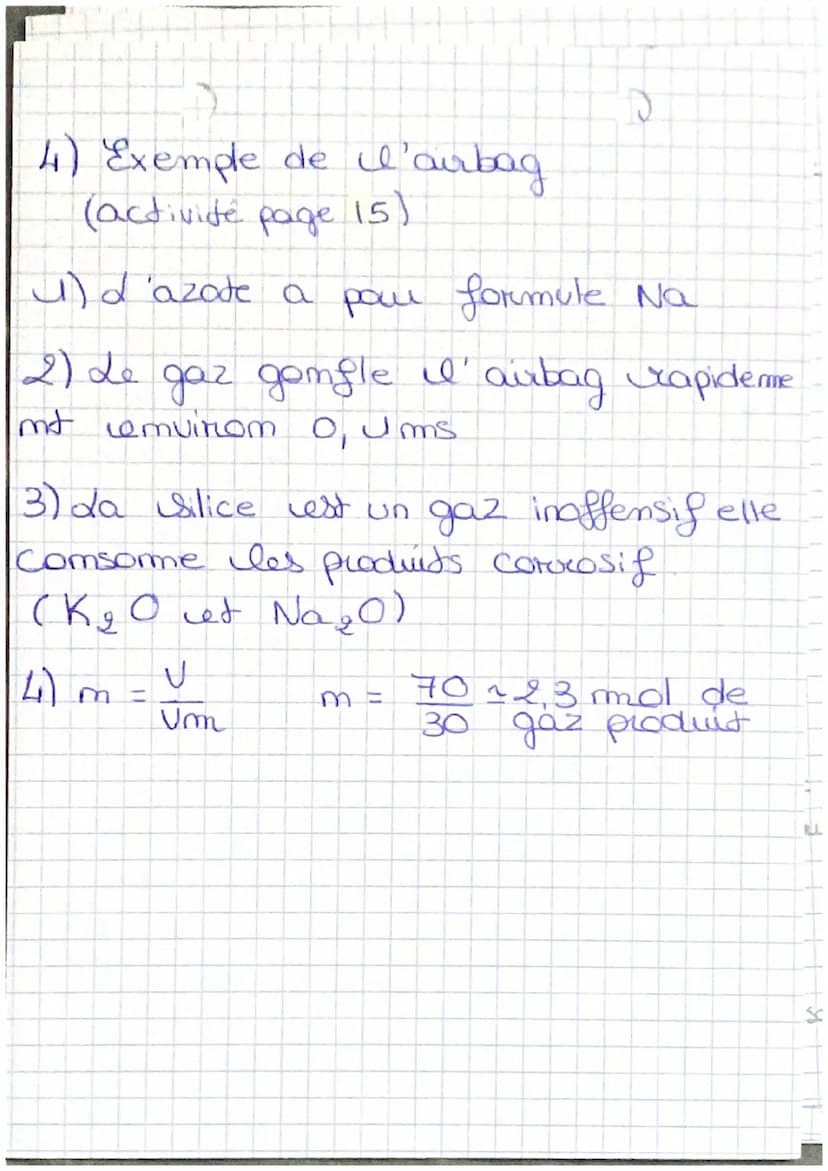 4) Exemple de l'airbag
(activité page 15)
1) L'azote a pour formule Na
2) Le gaz gonfle l'airbag rapideme
nt environ 0,1 ms
3) La silice est un gaz inoffensif elle
consomme les produits corrosif
(K₂O et Na₂O)
4) n = V/Vm n = 70/30 ≃ 2,3 mol de
gaz produit